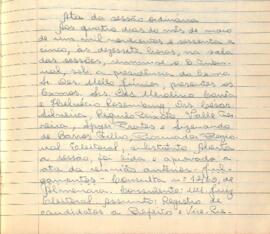 Ata da sessão ordinária
Aos quatro dias do mês de maio
de um mil novecentos e sessenta e
cinco, às dezessete horas, na sala
das sessões, o Tribunal
sob a presidência do
Des. Mello presentes os
Exmos. Srs. Des. Merolino Corrêa
e Des. Cesar
Silveira, Valle
reira, Lopes e Sizenando
de Barros Filho, Procurador Regional
Eleitoral, substituto. Aberta
a sessão, foi lida e aprovada a
ata da reunião anterior. Jul
gamentos - Consulta nº de
Almenara. Consulente: M. Juiz
Eleitoral. Assunto: Registro de
candidatos a Prefeito e Vice-Pre